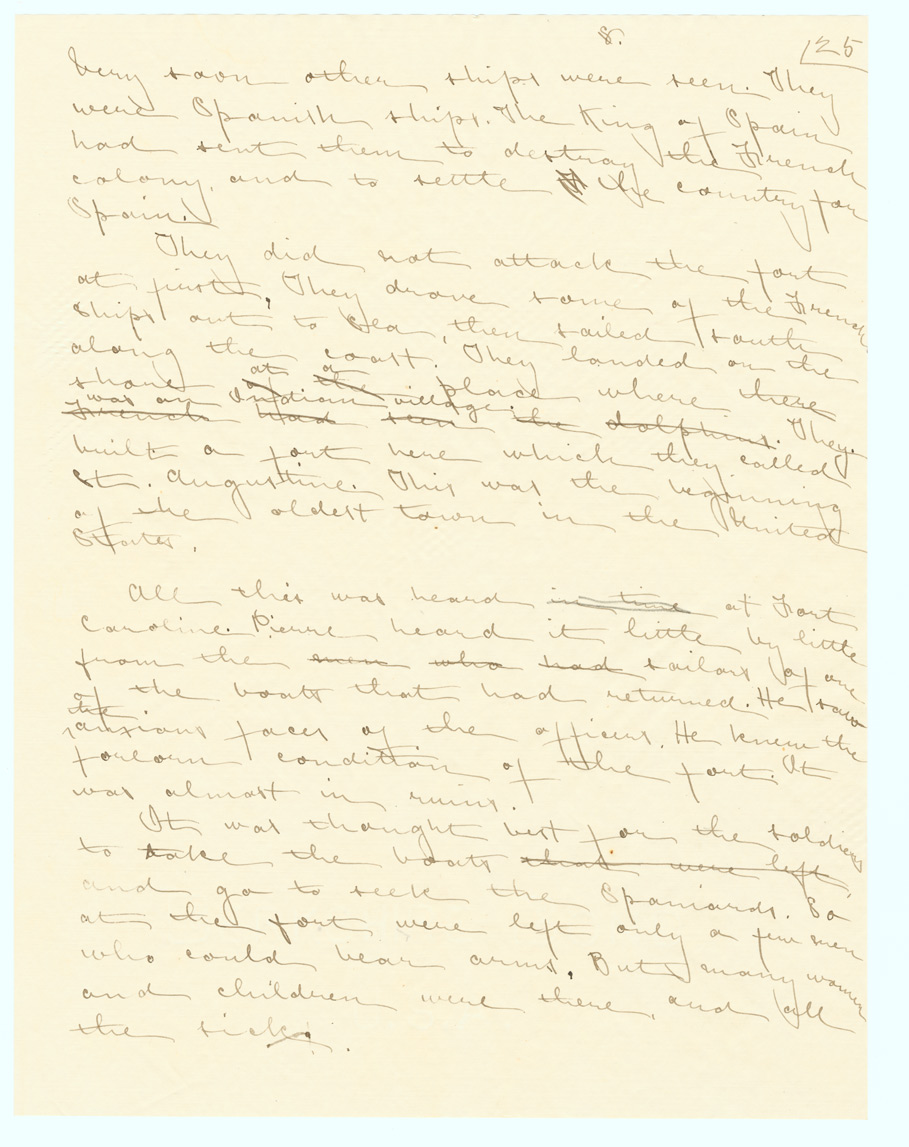 8.
125
Very soon other ships were seen. They
were Spanish ships. The King of Spain
had sent them to destroy the French
colony, and to settle the country for
Spain.
They did not attack the fort
at first. They drove some of the French
ships out to sea, then sailed south
along the coast. They landed on the
shore at a place where there
was an Indian village.
French had seen the dolphins. They
built a fort here which they called
St. Augustine. This was the beginning
of the oldest town in the United
States.
All this was heard in time at Fort
Caroline. Pierre heard it little by little
from the men who had sailors of one
of the boats that had returned. He saw
the
anxious faces of the officers. He knew the
forlorn condition of the fort. It
was almost in ruins.
It was thought best for the soldiers
to take the boats that were left,
and go to seek the Spaniards. So
at the fort were left only a few men
who could bear arms. But many women
and children were there, and all
the sick.